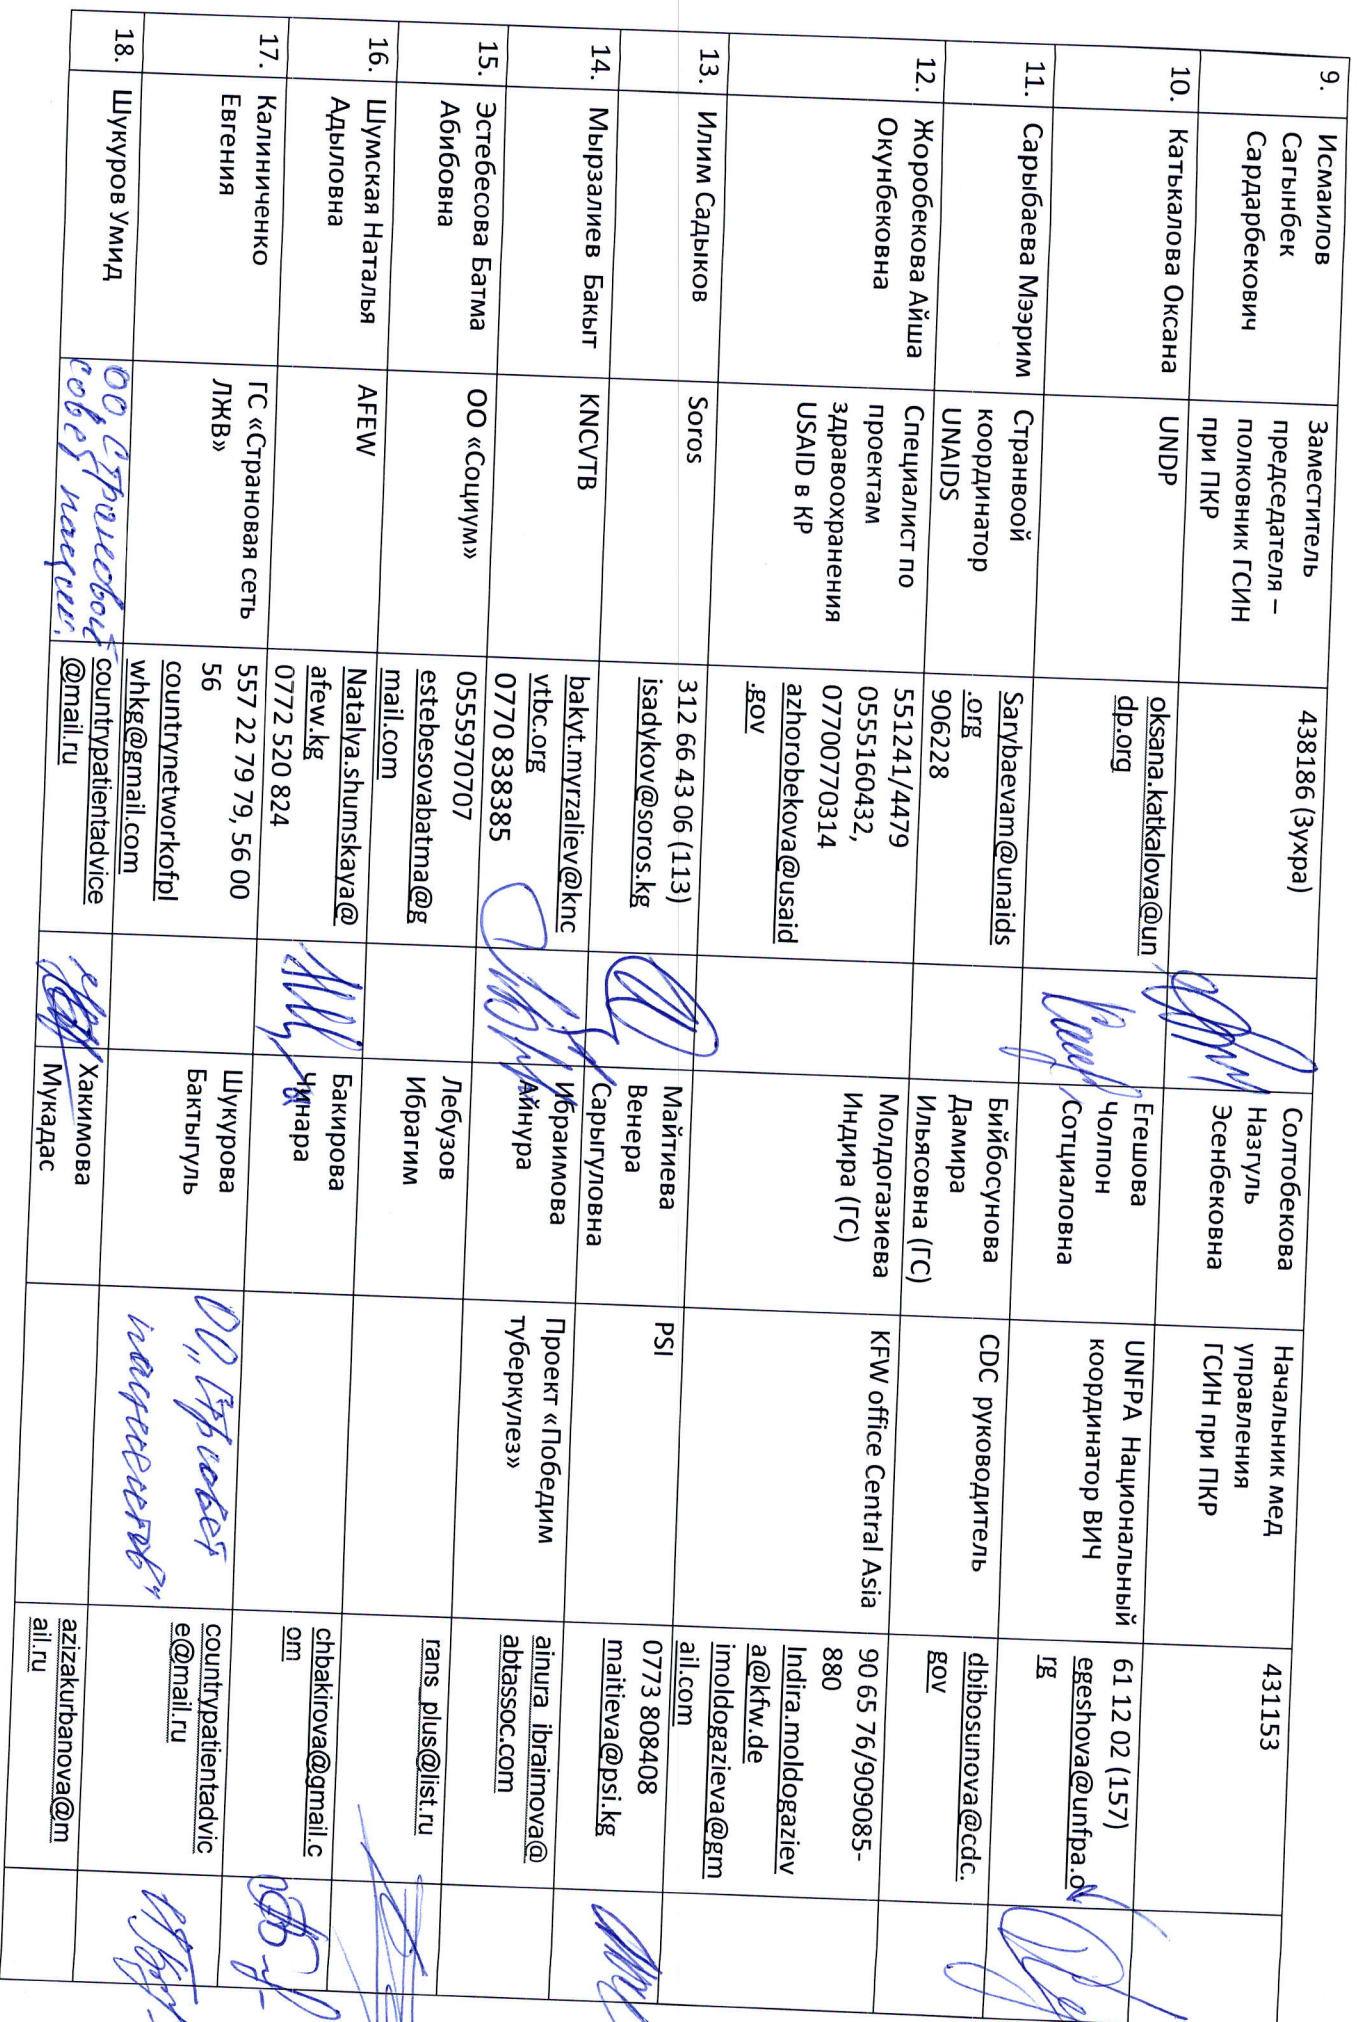 9.
Исмаилов
Сагынбек
Сардарбекович
Заместитель
председателя –
полковник ГСИН
при ПКР
438186 (Зухра)
Солтобекова
Назгуль
Эсенбековна
Начальник мед
управления
ГСИН при ПКР
431153
10.
Катькалова Оксана
UNDP
oksana.katkalova@un
dp.org
Егешова
Чолпон
Сотциаловна
UNFPA Национальный
координатор ВИЧ
61 12 02 (157)
egeshova@unfpa.o
rg
11.
Сарыбаева Мээрим
Странвоой
координатор
UNAIDS
Sarybaevam@unaids
.org
906228
Бийбосунова
Дамира
Ильясовна (ГС)
CDC руководитель
dbibosunova@cdc.
gov
12.
Жоробекова Айша
Окунбековна
Специалист по
проектам
здравоохранения
USAID в КР
551241/4479
0555160432,
07700770314
azhorobekova@usaid
.gov
Молдогазиева
Индира (ГС)
KFW office Central Asia
90 65 76/909085-
880
Indira.moldogaziev
a@kfw.de
imoldogazieva@gm
ail.com
13.
Илим Садыков
Soros
312 66 43 06 (113)
isadykov@soros.kg
Майтиева
Венера
Сарыгуловна
PSI
0773 808408
maitieva@psi.kg
14.
Мырзалиев Бакыт
KNCVTB
bakyt.myrzaliev@knc
vtbc.org
0770 838385
Ибраимова
Айнура
Проект «Победим
туберкулез»
ainura_ibraimova@
abtassoc.com
15.
Эстебесова Батма
Абибовна
ОО «Социум»
0555970707
estebesovabatma@g
mail.com
Лебузов
Ибрагим
rans_plus@list.ru
16.
Шумская Наталья
Адыловна
AFEW
Natalya.shumskaya@
afew.kg
0772 520 824
Бакирова
Чинара
chbakirova@gmail.c
om
17.
Калиниченко
Евгения
ГС «Страновая сеть
ЛЖВ»
557 22 79 79, 56 00
56
countrynetworkofpl
whkg@gmail.com
Шукурова
Бактыгуль
пациентов"
countrypatientadvic
e@mail.ru
18.
Шукуров Умид
ОО Страновой
совет пациен.
countrypatientadvice
@mail.ru
Хакимова
Мукадас
azizakurbanova@m
ail.ru